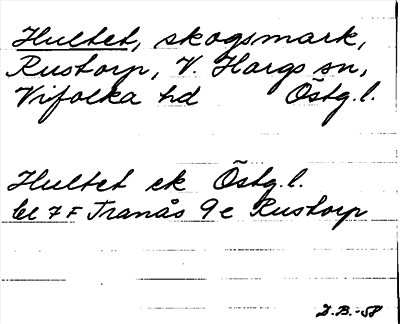 Hultet, skogsmark,
Rustorp, V. Hargs sn,
Vifolka hd Östg.l.
Hultet ek Östg.l.
bl 7 F Tranås 9 e Rustorp
D.B.-58